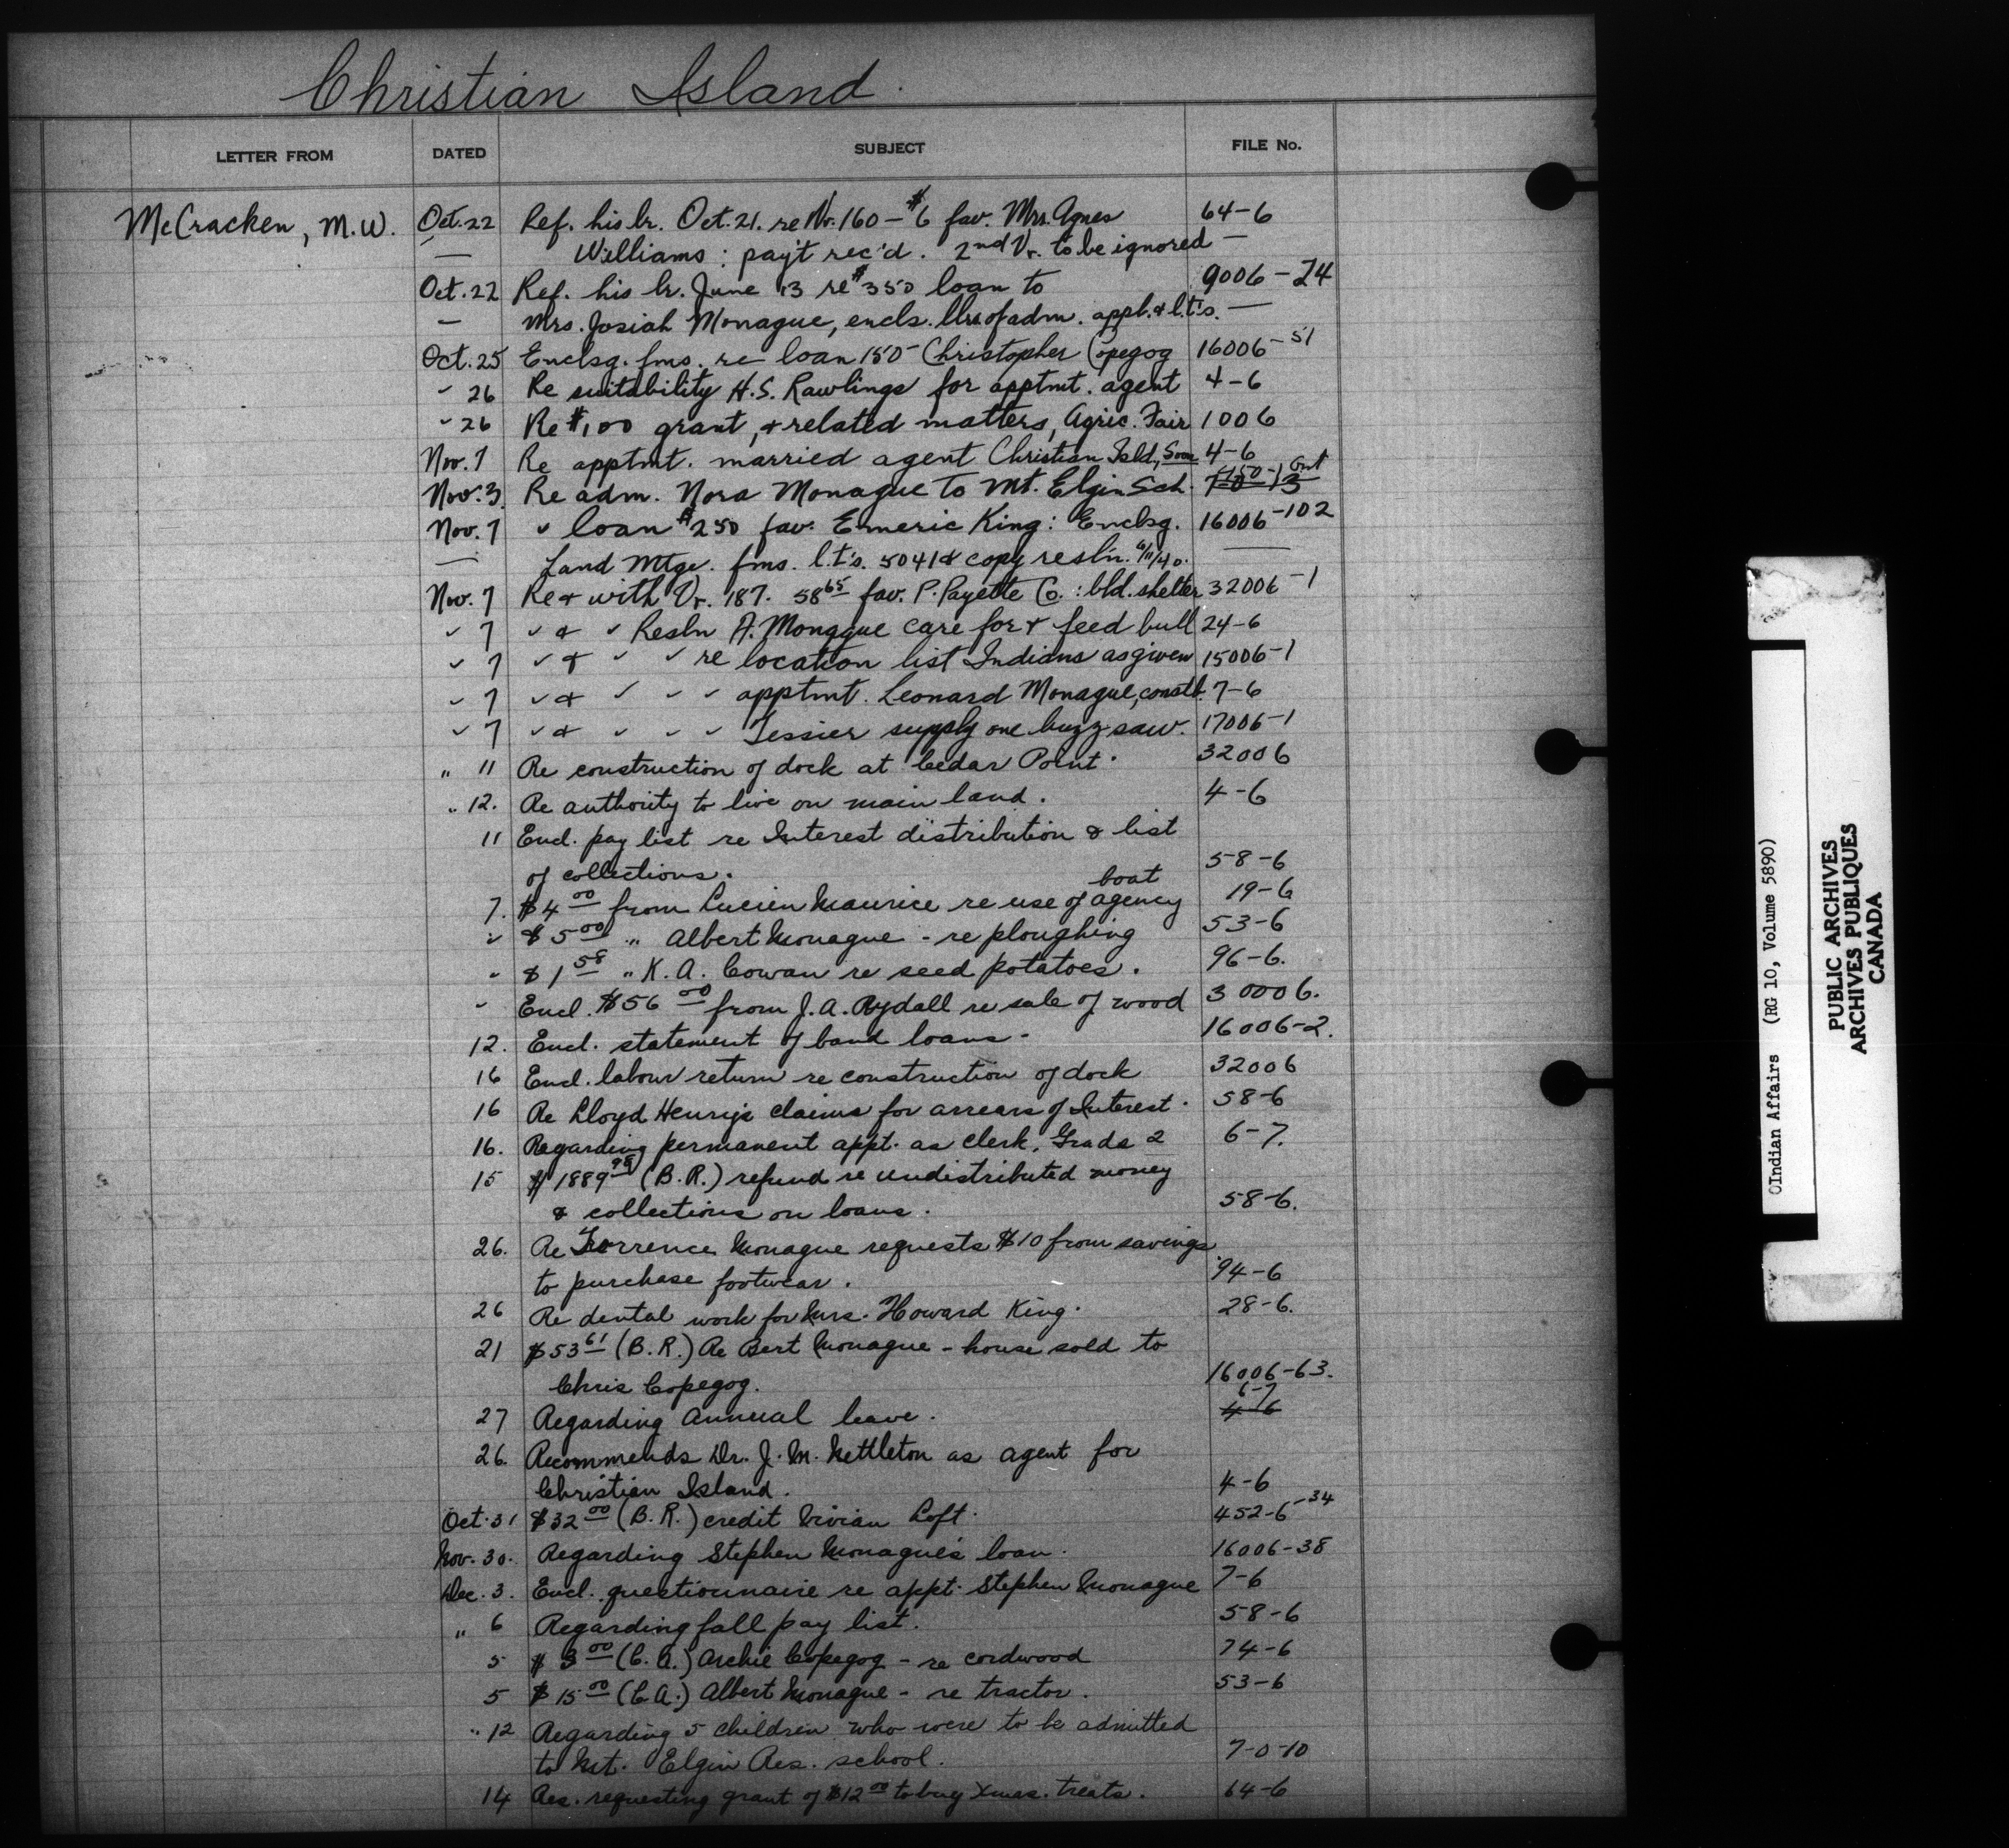 Christian Island.
LETTER FROM DATED SUBJECT FILE No.
McCracken, M.W. Oct. 22 Ref. his lr. Oct. 21. re Vr. 160 - $6 fav. Mrs. Agnes 64-6
— Williams : pay't rec'd. 2nd Vr. to be ignored —
Oct. 22 Ref. his lr. June 13 re $350 loan to 9006-24
— Mrs. Josiah Monague, encls. of adm. appl. & l.t's. —
Oct. 25 Enclsg. fms. re loan 150 Christopher Copegog 16006-51
" 26 Re suitability H.S. Rawlings for apptmt. agent 4-6
" 26 Re $100 grant, & related matters, Agric. Fair 1006
Nov. 1 Re apptmt. married agent Christian Isld, Soon 4-6
Nov. 3. Re adm. Nora Monague to Mt. Elgin Sch.
Nov. 7 " loan $250 fav. Emeric King : Enclsg. 16006-102
— Land Mtge. fms. l.t's. 5041 & copy resln. 6/11/40. —
Nov. 7 Re & with Vr. 187. 58 65 fav. P. Payette Co. : bld. shelter 32006-1
" 7 " & " Resln A. Monague care for & feed bull 24-6
" 7 " & " " re location list Indians as given 15006-1
" 7 " & " " " apptmt. Leonard Monague, constb. 7-6
" 7 " & " " " Tessier supply one buzz saw. 17006-1
" 11 Re construction of dock at Cedar Point. 32006
" 12. Re authority to live on main land. 4-6
11 Encl. pay list re Interest distribution & list
of collections. 58-6
boat
7. $4 00 from Lucien Maurice re use of agency 19-6
" $5 00 " Albert Monague - re ploughing 53-6
" $1 58 " K. A. Cowan re seed potatoes. 96-6.
" Encl. $56 00 from J. A. Rydall re sale of wood 30006.
12. Encl. statement of band loans - 16006-2.
16 Encl. labour return re construction of dock 32006
16 Re Lloyd Henry's claims for arrears of Interest. 58-6
16. Regarding permanent appt. as clerk, Grade 2 6-7.
15 $1889 98 (B. R.) refund re undistributed money
& collections on loans. 58-6.
26. Re Torrence Monague requests $10 from savings
to purchase footwear. 94-6
26 Re dental work for Mrs. Howard King. 28-6.
21 $53 61 (B. R.) Re Bert Monague - house sold to
Chris Copegog. 16006-63.
6-7
27 Regarding Annual leave. 4-6
26. Recommends Dr. J. M. Nettleton as agent for
Christian Island. 4-6
Oct. 31 $32 00 (B. R.) credit Vivian Loft. 452-6-34
Nov. 30. Regarding Stephen Monague's loan. 16006-38
Dec. 3. Encl. questionnaire re appt. Stephen Monague 7-6
" 6 Regarding fall pay list. 58-6
5 $3 00 (C. A.) Archie Copegog - re cordwood 74-6
5 $15 00 (C A.) Albert Monague - re tractor. 53-6
" 12 Regarding 5 children who were to be admitted
to Mt. Elgin Res. school. 7-0-10
14 Res. requesting grant of $12 00 to buy Xmas. treats. 64-6
©Indian Affairs (RG 10, Volume 5890)
PUBLIC ARCHIVES
ARCHIVES PUBLIQUES
CANADA